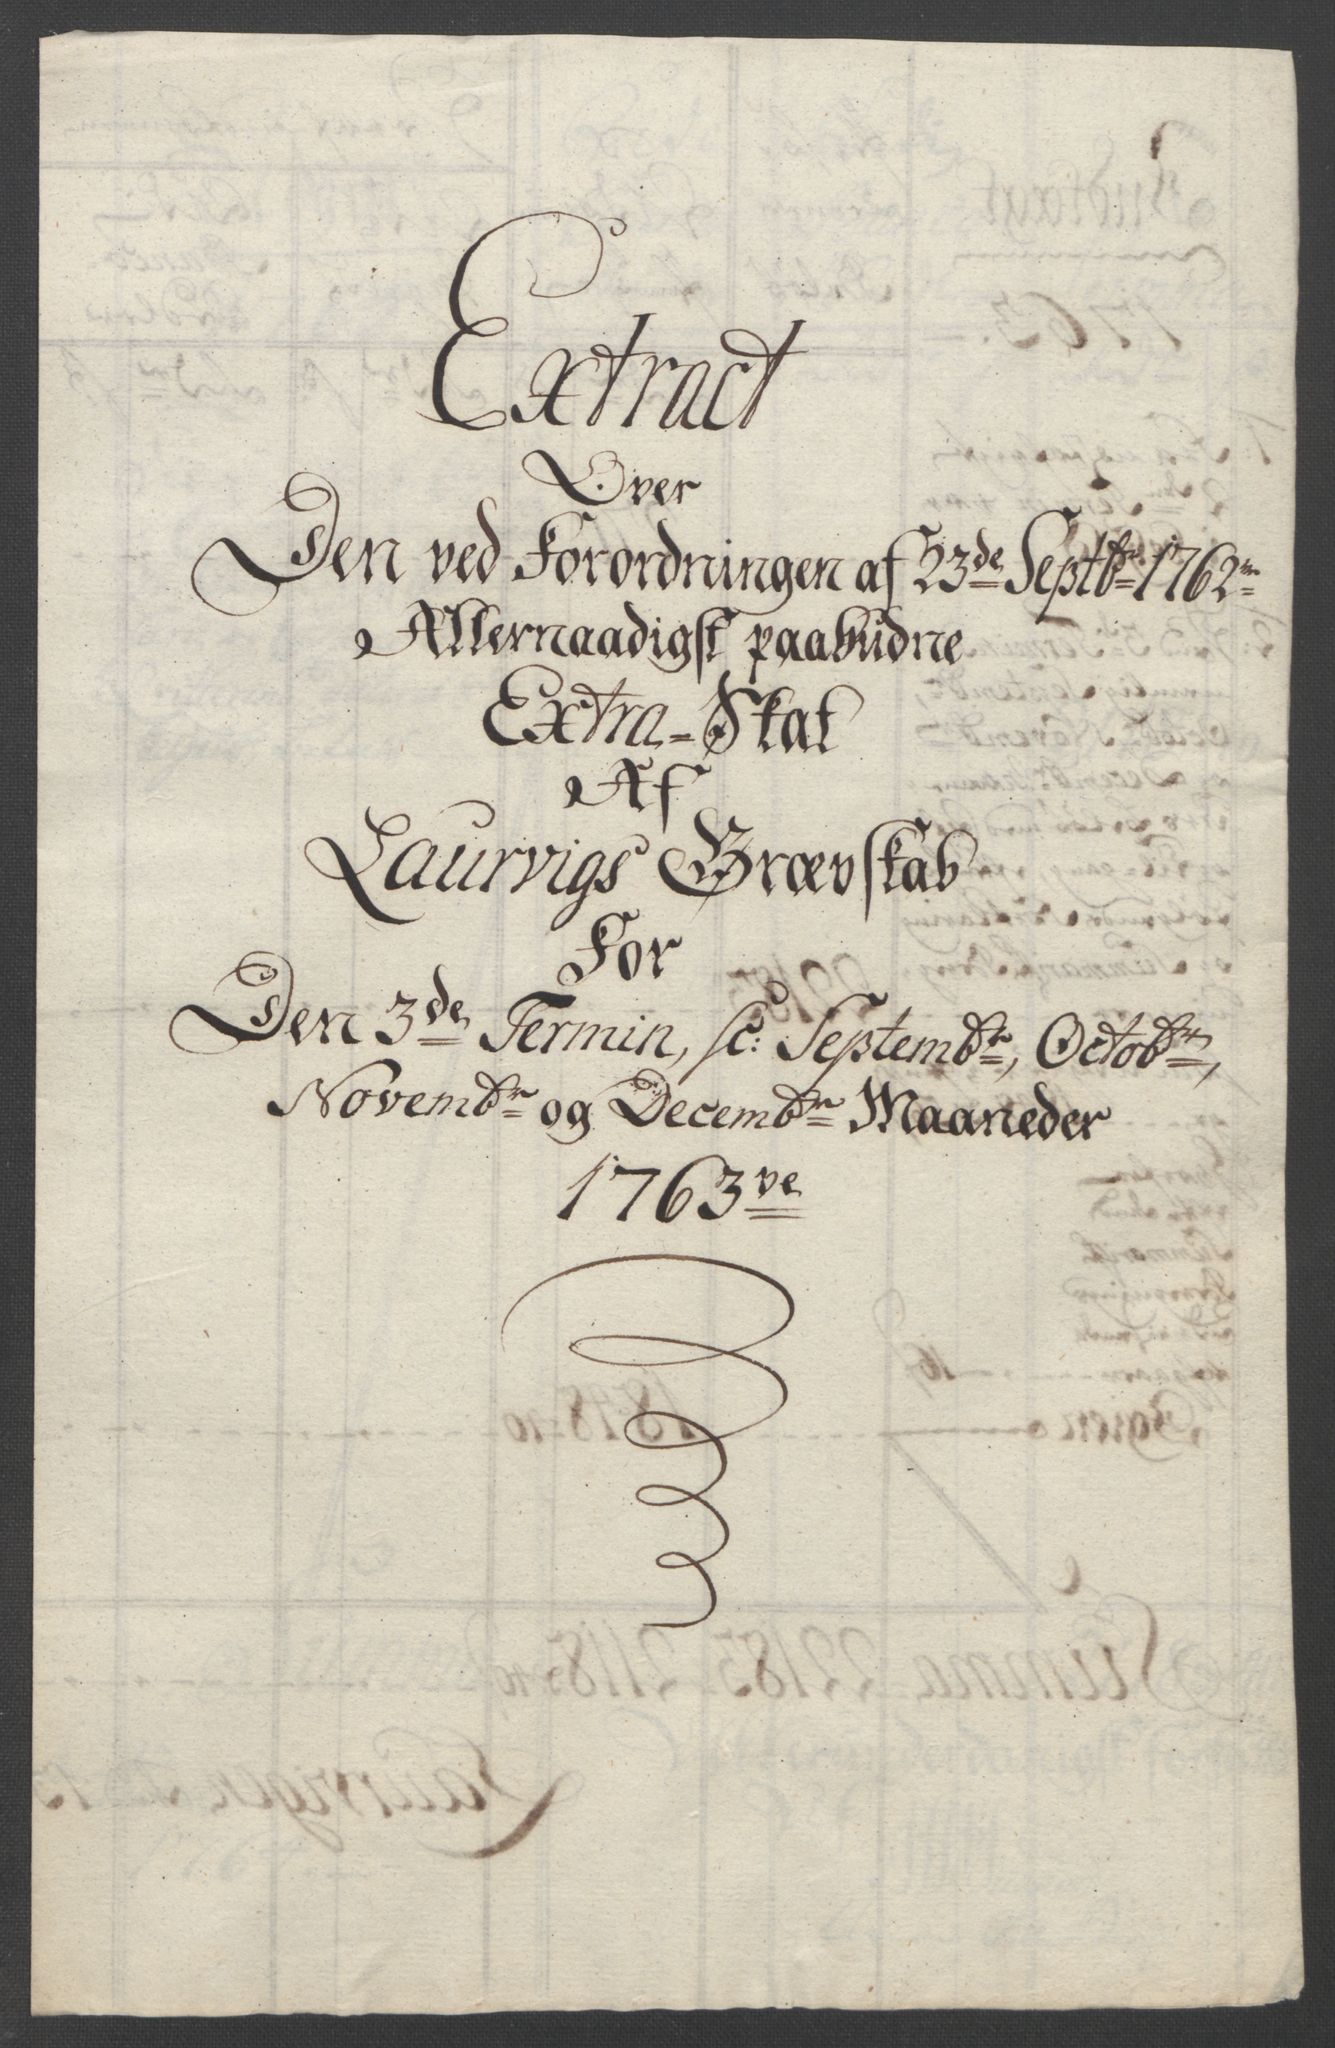 Extract
Over
Den ved Forordningen af 23de Septbr: 1762
Allernaadigst paabudne
Extra-Skat
Af
Laurvigs Grævskab
For
Den 3de Termin, sc: Septembr:, Octobr:,
Novembr: og Decembr: Maaneder
1763ve